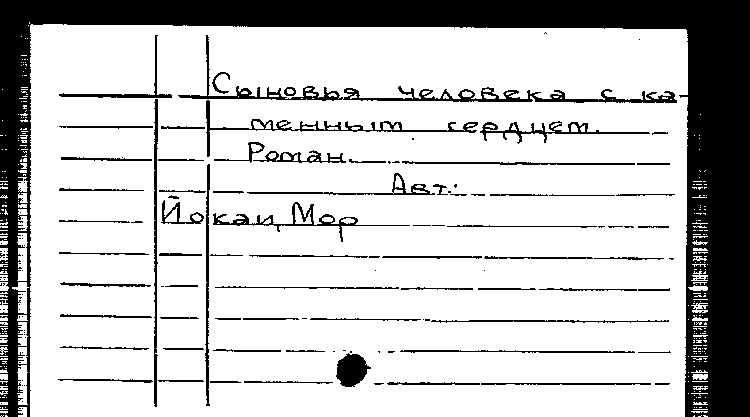 Сыновья человека с ка-
менным сердцем.
Роман.
Авт.:
Йокаи, Мор